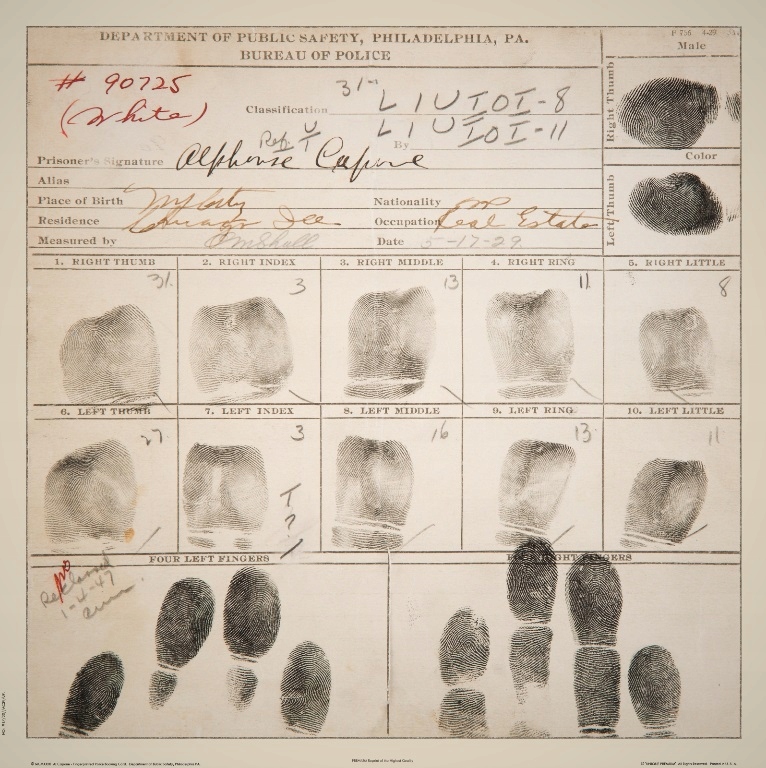 DEPARTMENT OF PUBLIC SAFETY, PHILADELPHIA, PA.
BUREAU OF POLICE
Male
# 90725
(White)
Classification 31- L I U IOI-8
Ref. U/T L I U IOI-11
By
Prisoner's Signature Alphonse Capone
Right Thumb
Color
Alias
Place of Birth NY City
Nationality
Residence Chicago Ill
Occupation Real Estate
Measured by
Date 5-17-29
Left Thumb
1. RIGHT THUMB
2. RIGHT INDEX
3. RIGHT MIDDLE
4. RIGHT RING
5. RIGHT LITTLE
31
3
13
11
8
6. LEFT THUMB
7. LEFT INDEX
8. LEFT MIDDLE
9. LEFT RING
10. LEFT LITTLE
27
3
16
13
11
T
?
FOUR LEFT FINGERS
FOUR RIGHT FINGERS
1-4-47